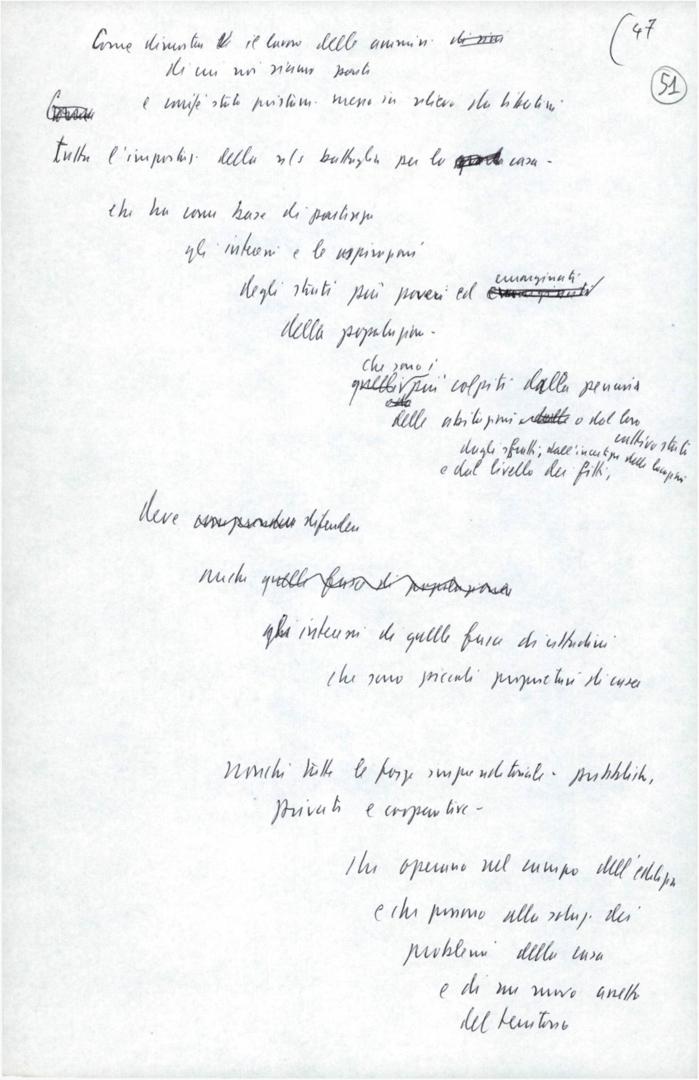 (47
51
Come dimostra il lavoro delle ammin.
di cui noi siamo parte
e com'è stato messo in rilievo da Libertini
tutta l'impostaz. della ns battaglia per la casa -
che ha come base di partenza
gli interessi e le aspirazioni
degli strati più poveri ed emarginati
della popolazione -
che sono i
più colpiti dalla penuria
delle abitazioni o dal loro
cattivo stato
dagli sfratti, dall'incertezza delle locazioni
e dal livello dei fitti,
deve difendere
anche
gli interessi di quelle fasce di cittadini
che sono piccoli proprietari di casa
nonché tutte le forze imprenditoriali - pubbliche,
private e cooperative -
che operano nel campo dell'edilizia
e che possono alla soluz. dei
problemi della casa
e di un nuovo assetto
del territorio